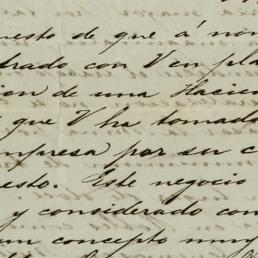 uesto de que á nom
trado con V en pla
ion de una Hacien
que V ha tomado
mpresa por su c
esto. Este negocio
y considerado con
un concepto muy